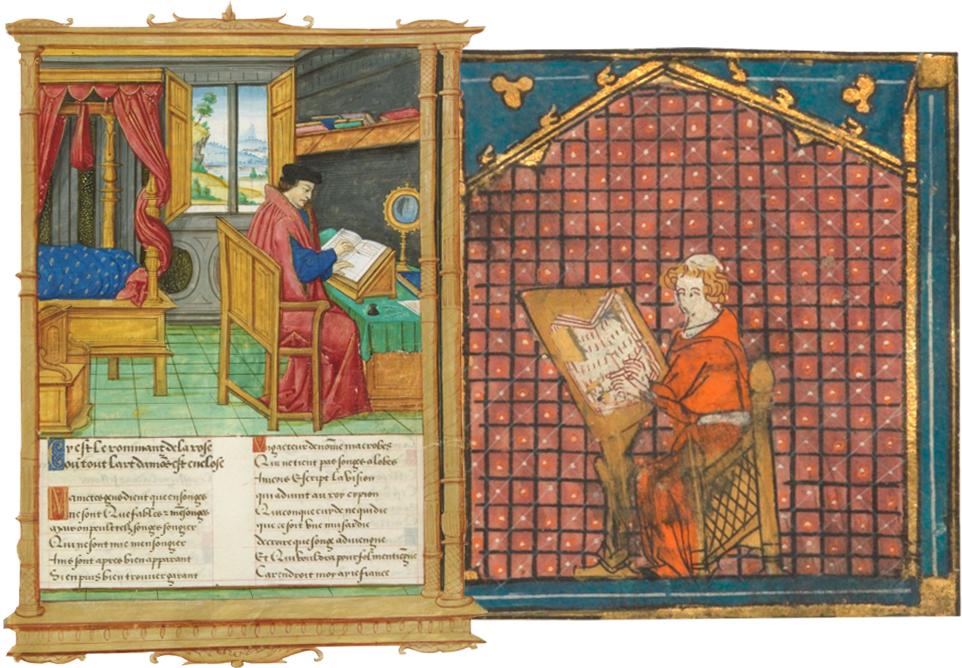 Cy est Le rommant de la rose
Ou tout lart damo͛s est enclose
Maintes gens dient que en songes
Ne sont Que fables ⁊ mēsonges
Mais on peult telz songes songier
Qui ne sont mie mensongier
Ains sont apres bien apparant
Si en puis bien trouuer garant
Ung acteur de nōme macrobes
Qui ne tient pas songes a lobes
Aincois Escript la vision
qui aduint au roy cypion
Quiconque cuyde ne qui die
que ce soit vne musardie
de croire que songe aduiengne
Et Qui vouldra pour fol mentiengne
Car endroit moy ay ie fiance